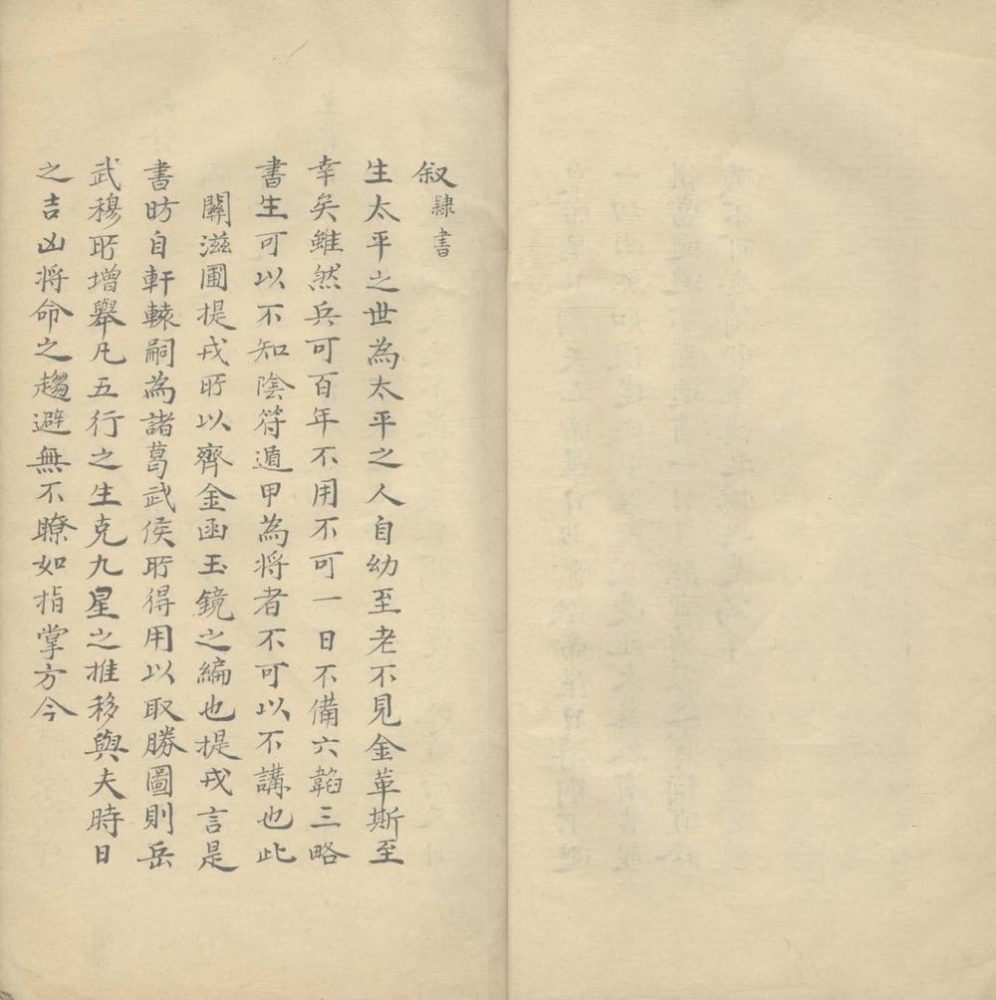 叙隸書
生太平之世為太平之人自幼至老不見金革斯至
幸矣雖然兵可百年不用不可一日不備六韜三略
書生可以不知陰符遁甲為將者不可以不講也此
關滋圃提戎所以齊金函玉鏡之編也提戎言是
書昉自軒轅嗣為諸葛武侯所得用以取勝圖則岳
武穆所增舉凡五行之生克九星之推移與夫時日
之吉凶將命之趨避無不瞭如指掌方今